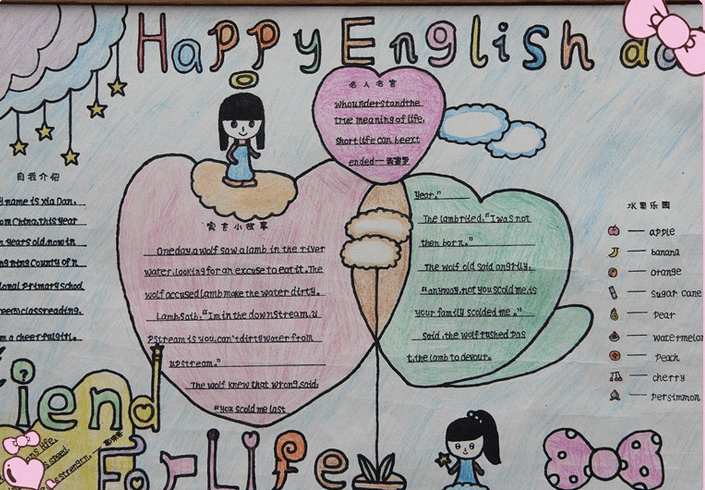 Happy English
名人名言
whounderstandthe
true meaning of life,
Short life can beext
ended——西塞罗
自我介绍
y name is Xia Dan.
om China.this year
n years old.now in
ng ning County of n
ional primary school
free in class reading.
m a cheerful girl.
寓言小故事
Oneday,a wolf saw a lamb in the river
water.looking for an excuse to eat it. The
wolf accused lamb make the water dirty.
Lamb saib."I'm in the downstream,u
Pstream is you.can't dirty water from
upstream."
The wolf knew that wrong,said:
"you scold me last
year."
The lamb ried,"I was not
then born."
The wolf old said angrily,
"anyway,not you scold me,is
your family scolded me."
Said .the wolf rushed pas
t.the lamb to devour.
水果乐园
apple
banana
orange
Sugar cane
pear
watermelon
peach
cherry
persimmon
iend
For Life
ns life,
s speed.
strength.